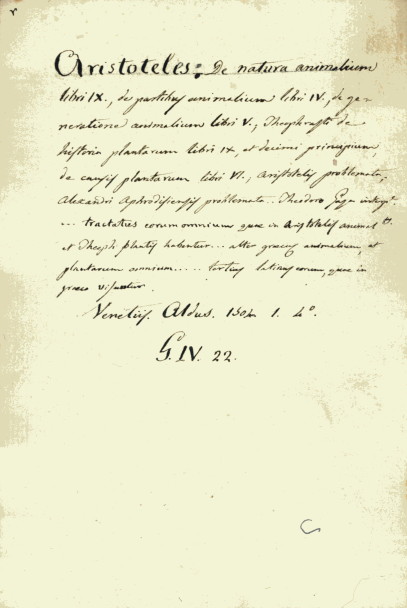 r
Aristoteles: De natura animalium
libri IX., de partibus animalium libri IV., de ge-
neratione animalium libri V., Theophrasti de
historia plantarum libri IX, et decimi principium
de causis plantarum libri VI., Aristotelis problemata,
Alexandri Aphrodisiensis problemata.. Theodoro Gaza
... tractatus eorum omnium quae in Aristotelis animal
et Theoph plantis habentur... alter graecus animalium, et
plantarum omnium..... tertius latinus eorum, quae in
graeco
Venetiis. Aldus. 1504 1. 4°.
G. IV. 22.